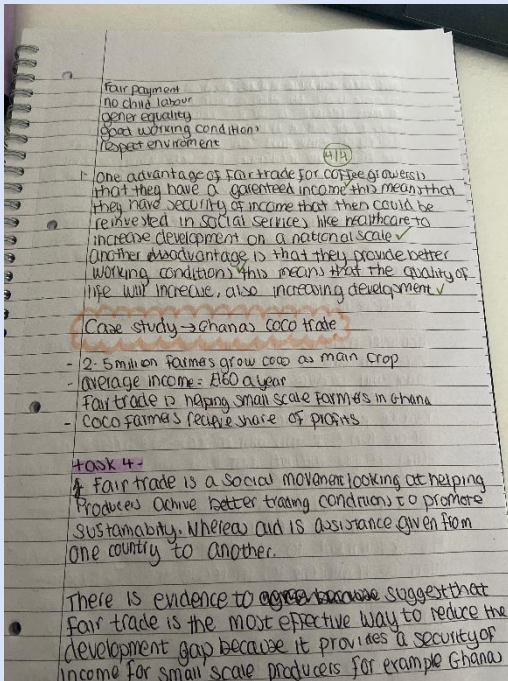 fair payment
no child labour
gener equality
good working conditions
respect enviroment
4/4
1- one advantage of fair trade for coffee growers is
that they have a garenteed income this means that
they have security of income that then could be
reinvested in social services like healthcare to
increase development on a national scale ✓
another advantage is that they provide better
working conditions this means that the quality of
life will increase, also increasing development ✓
Case study → Ghanas coco trade
- 2.5 million farmers grow coco as main crop
- average income = £160 a year
fair trade is helping small scale farmers in Ghana
- coco farmers recieve share of profits
task 4-
fair trade is a social movement looking at helping
Producers achive better trading conditions to promote
sustainabity. Whereas aid is assistance given from
one country to another.
There is evidence to suggest that
fair trade is the most effective way to reduce the
development gap because it provides a security of
income for small scale producers for example Ghana